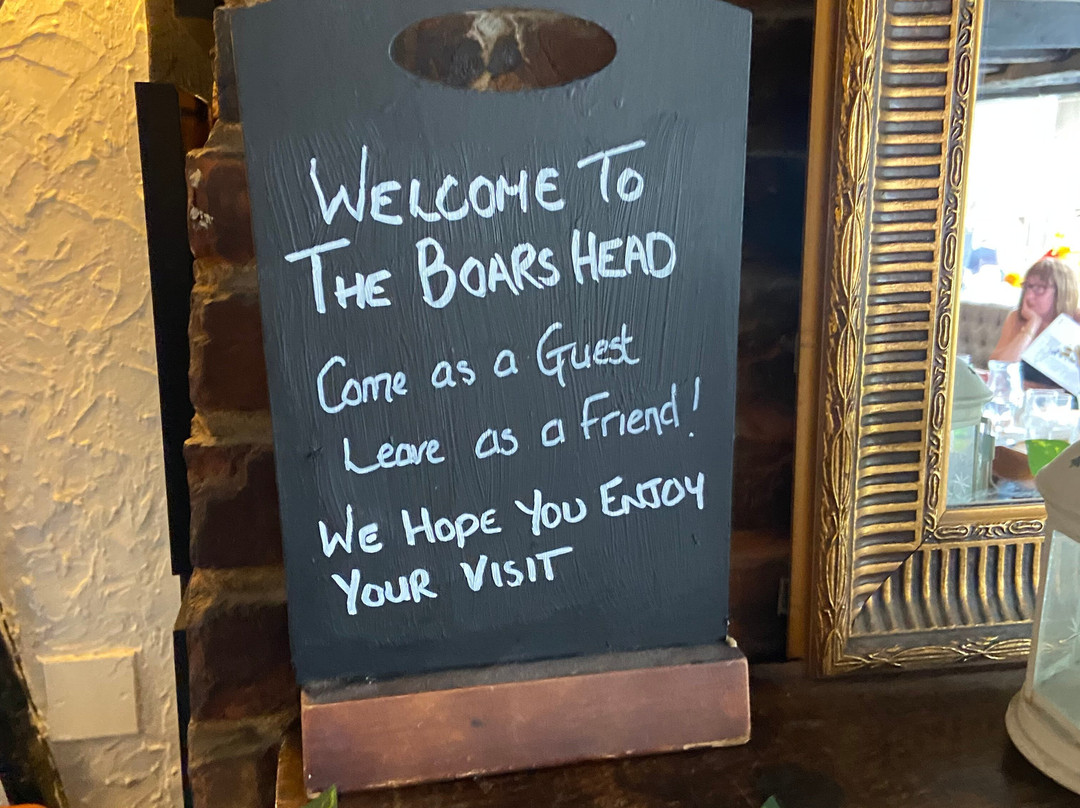 WELCOME TO
THE BOARS HEAD
Come as a Guest
Leave as a Friend!
WE HOPE YOU ENJOY
YOUR VISIT